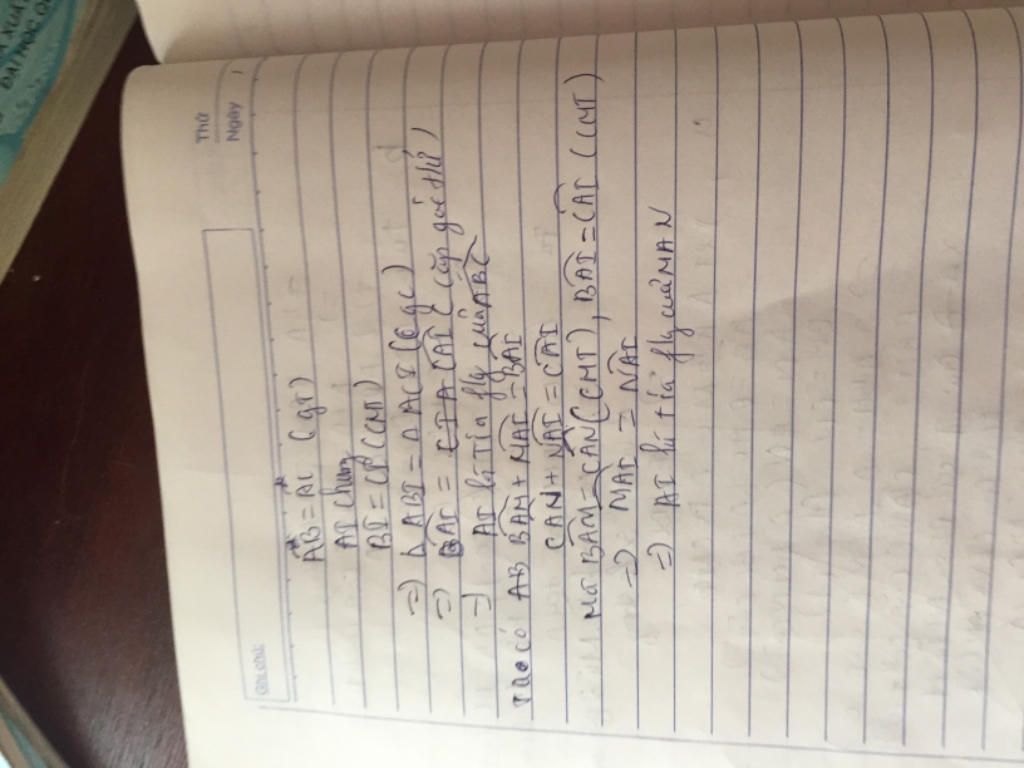 ĐẠI HỌC
Thứ
Ngày
Ghi chú:
AB = AC (gt)
AI chung
BI = CI (CMT)
=> Δ ABI = Δ ACI (c g c)
=> BAI = CIA CAI ( cặp góc )
=> AI là Tia của ABC
Ta có AB BAM + MAI = BAI
CAN + NAI = CAI
Mà BAM = CAN (CMT), BAI = CAI (CMT)
=> MAI = NAI
=> AI là tia của MAN